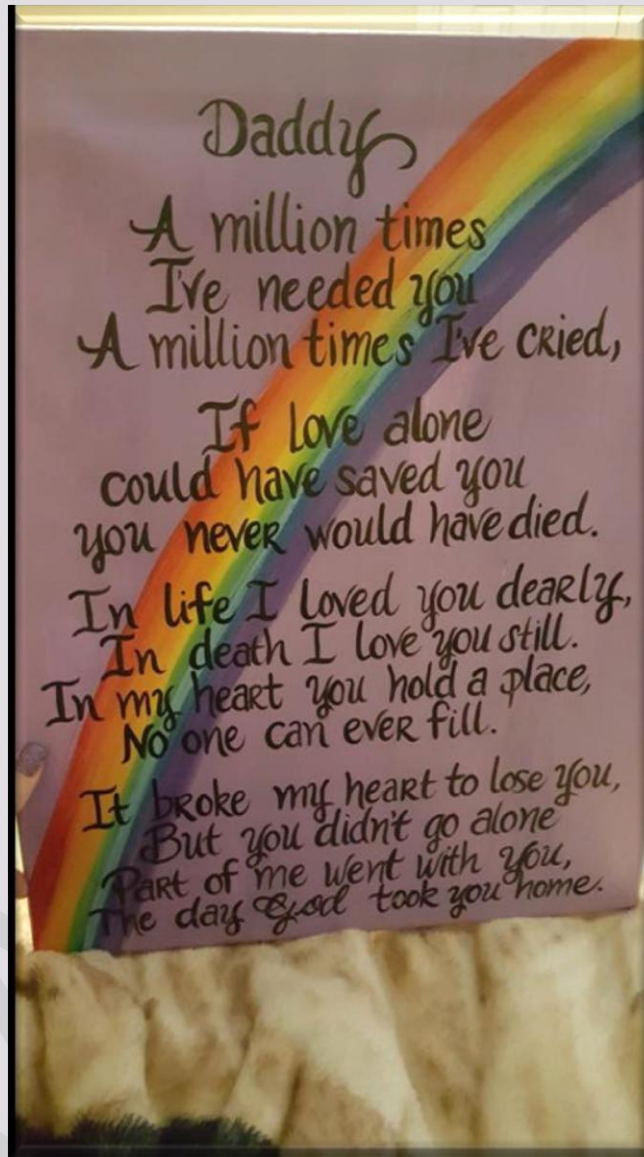 Daddy
A million times
I've needed you
A million times I've cried,
If love alone
could have saved you
you never would have died.
In life I loved you dearly,
In death I love you still.
In my heart you hold a place,
No one can ever fill.
It broke my heart to lose you,
But you didn't go alone
Part of me went with you,
The day God took you home.